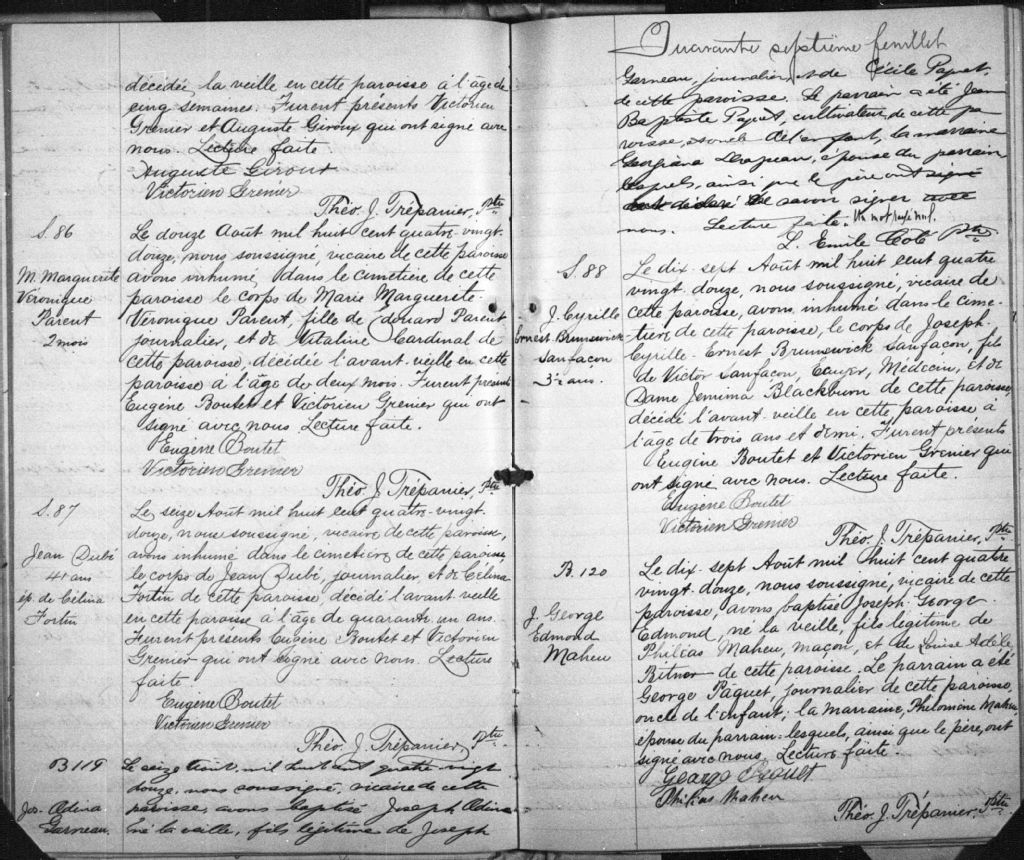 décédée, la veille en cette paroisse à l'âge de
cinq semaines. Furent présents Victorien
Grenier et Auguste Giroux qui ont signé avec
nous. Lecture faite.
Auguste Giroux
Victorien Grenier
Théo. J. Trépanier, Ptre
S. 86
M. Marguerite
Véronique
Parent
2 mois
Le douze Août mil huit cent quatre-vingt-
douze, nous soussigné, vicaire de cette paroisse
avons inhumé dans le cimetière de cette
paroisse le corps de Marie Marguerite-
Véronique Parent, fille de Edouard Parent
journalier, et de Vitaline Cardinal de
cette paroisse, décédée l'avant-veille en cette
paroisse à l'âge de deux mois. Furent présents
Eugène Boutet et Victorien Grenier qui ont
signé avec nous. Lecture faite.
Eugène Boutet
Victorien Grenier
Théo. J. Trépanier, Ptre
S. 87
Jean Dubé
41 ans
ép. de Célina
Fortin
Le seize Août mil huit cent quatre-vingt-
douze, nous soussigné, vicaire de cette paroisse,
avons inhumé dans le cimetière de cette paroisse
le corps de Jean Dubé, journalier, et de Célina
Fortin de cette paroisse décédé l'avant-veille
en cette paroisse à l'âge de quarante un ans.
Furent présents Eugène Boutet et Victorien
Grenier qui ont signé avec nous. Lecture
faite
Eugène Boutet
Victorien Grenier
Théo. J. Trépanier, Ptre
B 119
Jos. Adina
Garneau
Le seize Août, mil huit cent quatre vingt
douze, nous soussigné, vicaire de cette
paroisse, avons baptisé Joseph Adina
né la veille, fils légitime de Joseph
Quarante septième feuillet
Garneau, journalier, et de Cécile Paquet,
de cette paroisse. Le parrain a été Jean
Baptiste Paquet, cultivateur, de cette pa
roisse, oncle de l'enfant, la marraine
Georgiana épouse du parrain
lesquels, ainsi que le père ont signé
déclaré ne savoir signer avec
nous. Lecture faite. Un mot rayé nul.
L. Emile Coté Ptre
S. 88
J. Cyrille
Ernest Brunswick
Sanfaçon
3½ ans.
Le dix-sept Août mil huit cent quatre
vingt-douze, nous soussigné, vicaire de
cette paroisse, avons inhumé dans le cime-
tière de cette paroisse, le corps de Joseph-
Cyrille-Ernest Brunswick Sanfaçon, fils
de Victor Sanfaçon, Ecuyer, Médecin, et de
Dame Jemima Blackburn de cette paroisse,
décédé l'avant-veille en cette paroisse à
l'âge de trois ans et demi. Furent présents
Eugène Boutet et Victorien Grenier qui
ont signé avec nous. Lecture faite.
Eugène Boutet
Victorien Grenier
Théo. J. Trépanier, Ptre
B. 120
J. George
Edmond
Maheu
Le dix-sept Août mil huit cent quatre
vingt-douze, nous soussigné, vicaire de cette
paroisse, avons baptisé Joseph-George-
Edmond, né la veille, fils légitime de
Philéas Maheu, maçon, et de Louise Adèle
Bitner de cette paroisse. Le parrain a été
George Paquet, journalier de cette paroisse,
oncle de l'enfant, la marraine, Philomène Maheu
épouse du parrain, lesquels, ainsi que le père, ont
signé avec nous. Lecture faite.
George Paquet
Philéas Maheu
Théo. J. Trépanier, Ptre